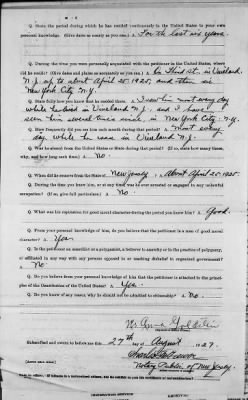 Q. State the period during which he has resided continuously in the United States to your own
personal knowledge. (Give dates as nearly as you can.) A. For the last six years.
Q. During the time you were personally acquainted with the petitioner in the United States, where
did he reside? (Give dates and places as accurately as you can.) A. in Vineland,
N.J. up to about April 25-1925, and then in
New York City N.Y.
Q. State fully how you know that he resided there. A. I saw him most every day
while he lived in Vineland N.J. and I have
seen him several times since, in New York City N.Y.
Q. How frequently did you see him each month during that period? A. most every
day while he was in Vineland N.J.
Q. Was he absent from the United States or State during that period? (If so, state how many times,
why, and how long each time.) A. No.
Q. When did he remove from the State of New Jersey, A. About April 25-1925.
Q. During the time you knew him, or at any time was he ever arrested or engaged in any unlawful
occupation? (If so, give full particulars.) A. No.
Q. What was his reputation for good moral character during the period you knew him? A. Good.
Q. From your personal knowledge of him, do you believe that the petitioner is a man of good moral
character? A. Yes.
Q. Is the petitioner an anarchist or a polygamist, a believer in anarchy or in the practice of polygamy,
or affiliated in any way with any persons opposed to or teaching disbelief in organized government?
A. No
Q. Do you believe from your personal knowledge of him that the petitioner is attached to the principles
of the Constitution of the United States? A. Yes.
Q. Do you know of any reason why he should not be admitted to citizenship? A. No.
Anna
Subscribed and sworn to before me this 27th day of August 1927.
Notary Public of New Jersey.